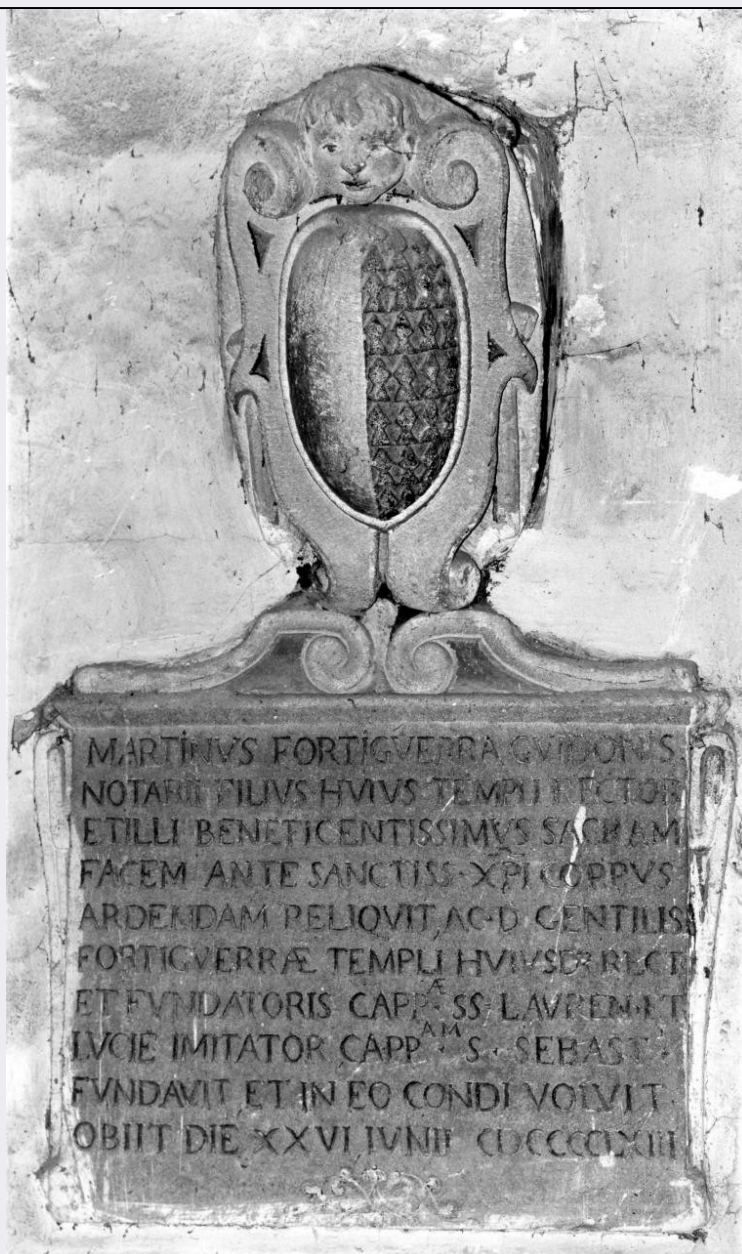 MARTINVS FORTIGVERRA GVIDONIS
NOTARII FILIVS HVIVS TEMPLI RECTOR
ET ILLI BENEFICENTISSIMVS SACRAM
FACEM ANTE SANCTISS · XPI CORPVS
ARDENDAM RELIQVIT, AC · D GENTILIS
FORTIGVERRÆ TEMPLI HVIVS RECT
ET FVNDATORIS CAPP Æ SS · LAVREN · ET
LVCIE IMITATOR CAPP AM S · SEBAST
FVNDAVIT, ET IN EO CONDI VOLVIT ·
OBIIT DIE XXVI IVNII